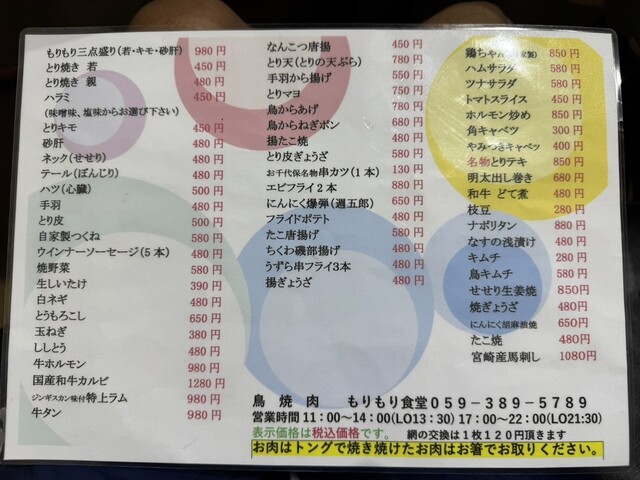 もりもり三点盛り(若・キモ・砂肝) 980円
とり焼き 若 450円
とり焼き 親 480円
ハラミ 450円
(味噌味、塩味からお選び下さい)
とりキモ 450円
砂肝 480円
ネック(せせり) 480円
テール(ぼんじり) 480円
ハツ(心臓) 500円
手羽 480円
とり皮 500円
自家製つくね 580円
ウインナーソーセージ(5本) 480円
焼野菜 580円
生しいたけ 390円
白ネギ 480円
とうもろこし 650円
玉ねぎ 380円
ししとう 480円
牛ホルモン 980円
国産和牛カルビ 1280円
ジンギスカン味付特上ラム 980円
牛タン 980円
なんこつ唐揚 450円
とり天(とりの天ぷら) 580円
手羽から揚げ 550円
とりマヨ 750円
鳥からあげ 780円
鳥からねぎポン 680円
揚たこ焼 480円
とり皮ぎょうざ 580円
お千代保名物串カツ(1本) 130円
エビフライ2本 880円
にんにく爆弾(週五郎) 650円
フライドポテト 480円
たこ唐揚げ 580円
ちくわ磯部揚げ 480円
うずら串フライ3本 480円
揚ぎょうざ 480円
鶏ちゃん 850円
ハムサラダ 580円
ツナサラダ 580円
トマトスライス 450円
ホルモン炒め 850円
角キャベツ 300円
やみつきキャベツ 400円
名物とりテキ 850円
明太出し巻き 680円
和牛 どて煮 480円
枝豆 280円
ナポリタン 880円
なすの浅漬け 480円
キムチ 280円
鳥キムチ 580円
せせり生姜焼 850円
焼ぎょうざ 480円
にんにく胡麻油焼 650円
たこ焼 480円
宮崎産馬刺し 1080円
鳥 焼 肉 もりもり食堂059-389-5789
営業時間11:00~14:00(LO13:30)17:00~22:00(LO21:30)
表示価格は税込価格です。 網の交換は1枚120円頂きます
お肉はトングで焼き焼けたお肉はお箸でお取りください。